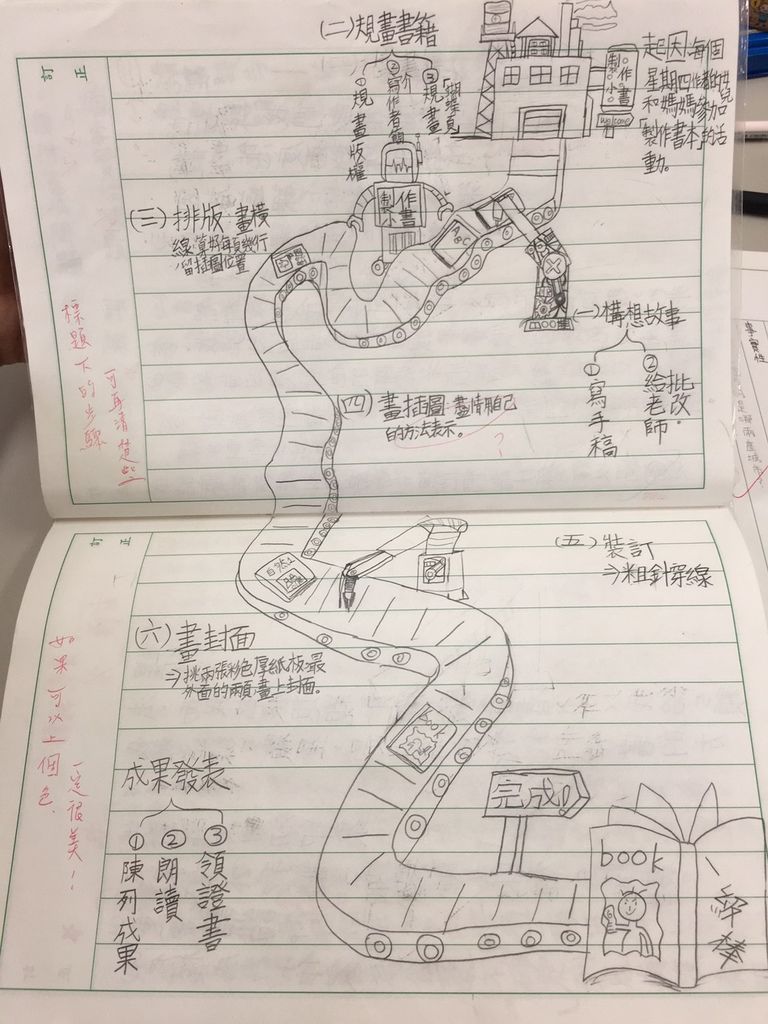 訂正
起因 每個
星期四
和媽媽參加
「製作書本」的活
動。
製作書小
welcome
(一)構想故事
①寫手稿
②給老師批改.
(二)規畫書籍
①規畫版權
②寫作者簡介
③規畫「蝴蝶頁」
製作書
ABC
(三)排版 畫橫
線 算好每頁幾行
留插圖位置
(四)畫插圖 盡情用自己
的方法表示。
標題下的步驟
可再清楚些
訂正
(五)裝訂
⇒粗針穿線
(六)畫封面
⇒挑兩張粉色厚紙板最
外面的兩頁畫上封面。
book
成果發表
①陳列成果
②朗讀
③領證書
完成!
book
如果可以上個色.
一定很美!